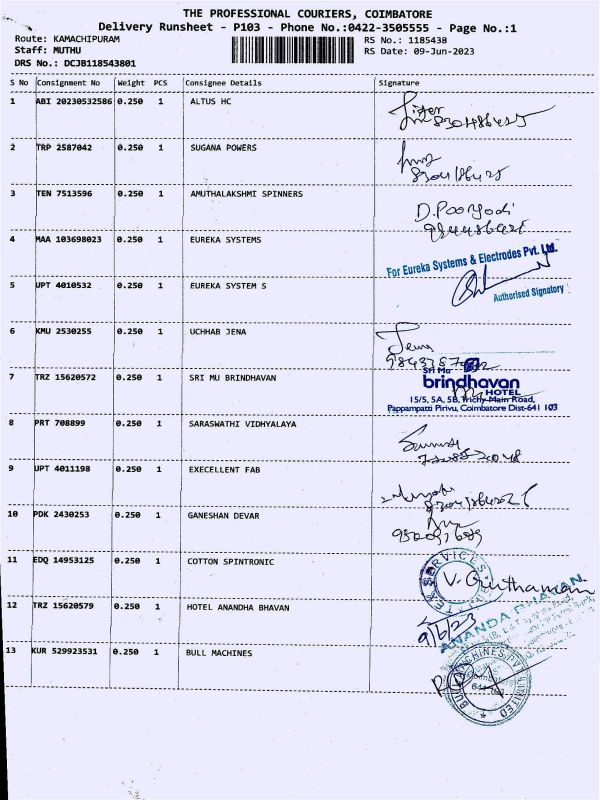 THE PROFESSIONAL COURIERS, COIMBATORE
Delivery Runsheet - P103 - Phone No.:0422-3505555 - Page No.:1
Route: KAMACHIPURAM RS No.: 1185438
Staff: MUTHU RS Date: 09-Jun-2023
DRS No.: DCJB118543801
S No Consignment No Weight PCS Consignee Details Signature
1 ABI 20230532586 0.250 1 ALTUS HC
2 TRP 2587042 0.250 1 SUGANA POWERS
3 TEN 7513596 0.250 1 AMUTHALAKSHMI SPINNERS
4 MAA 103698023 0.250 1 EUREKA SYSTEMS
For Eureka Systems & Electrodes Pvt. Ltd.
5 UPT 4010532 0.250 1 EUREKA SYSTEM S
Authorised Signatory
6 KMU 2530255 0.250 1 UCHHAB JENA
Jena
7 TRZ 15620572 0.250 1 SRI MU BRINDHAVAN
Sri Mu
brindhavan
HOTEL
15/5, 5A, 5B, Trichy Main Road,
Pappampatti Pirivu, Coimbatore Dist-641 103
8 PRT 708899 0.250 1 SARASWATHI VIDHYALAYA
9 UPT 4011198 0.250 1 EXECELLENT FAB
10 PDK 2430253 0.250 1 GANESHAN DEVAR
11 EDQ 14953125 0.250 1 COTTON SPINTRONIC
SERVICES
12 TRZ 15620579 0.250 1 HOTEL ANANDHA BHAVAN
9/6/23
13 KUR 529923531 0.250 1 BULL MACHINES